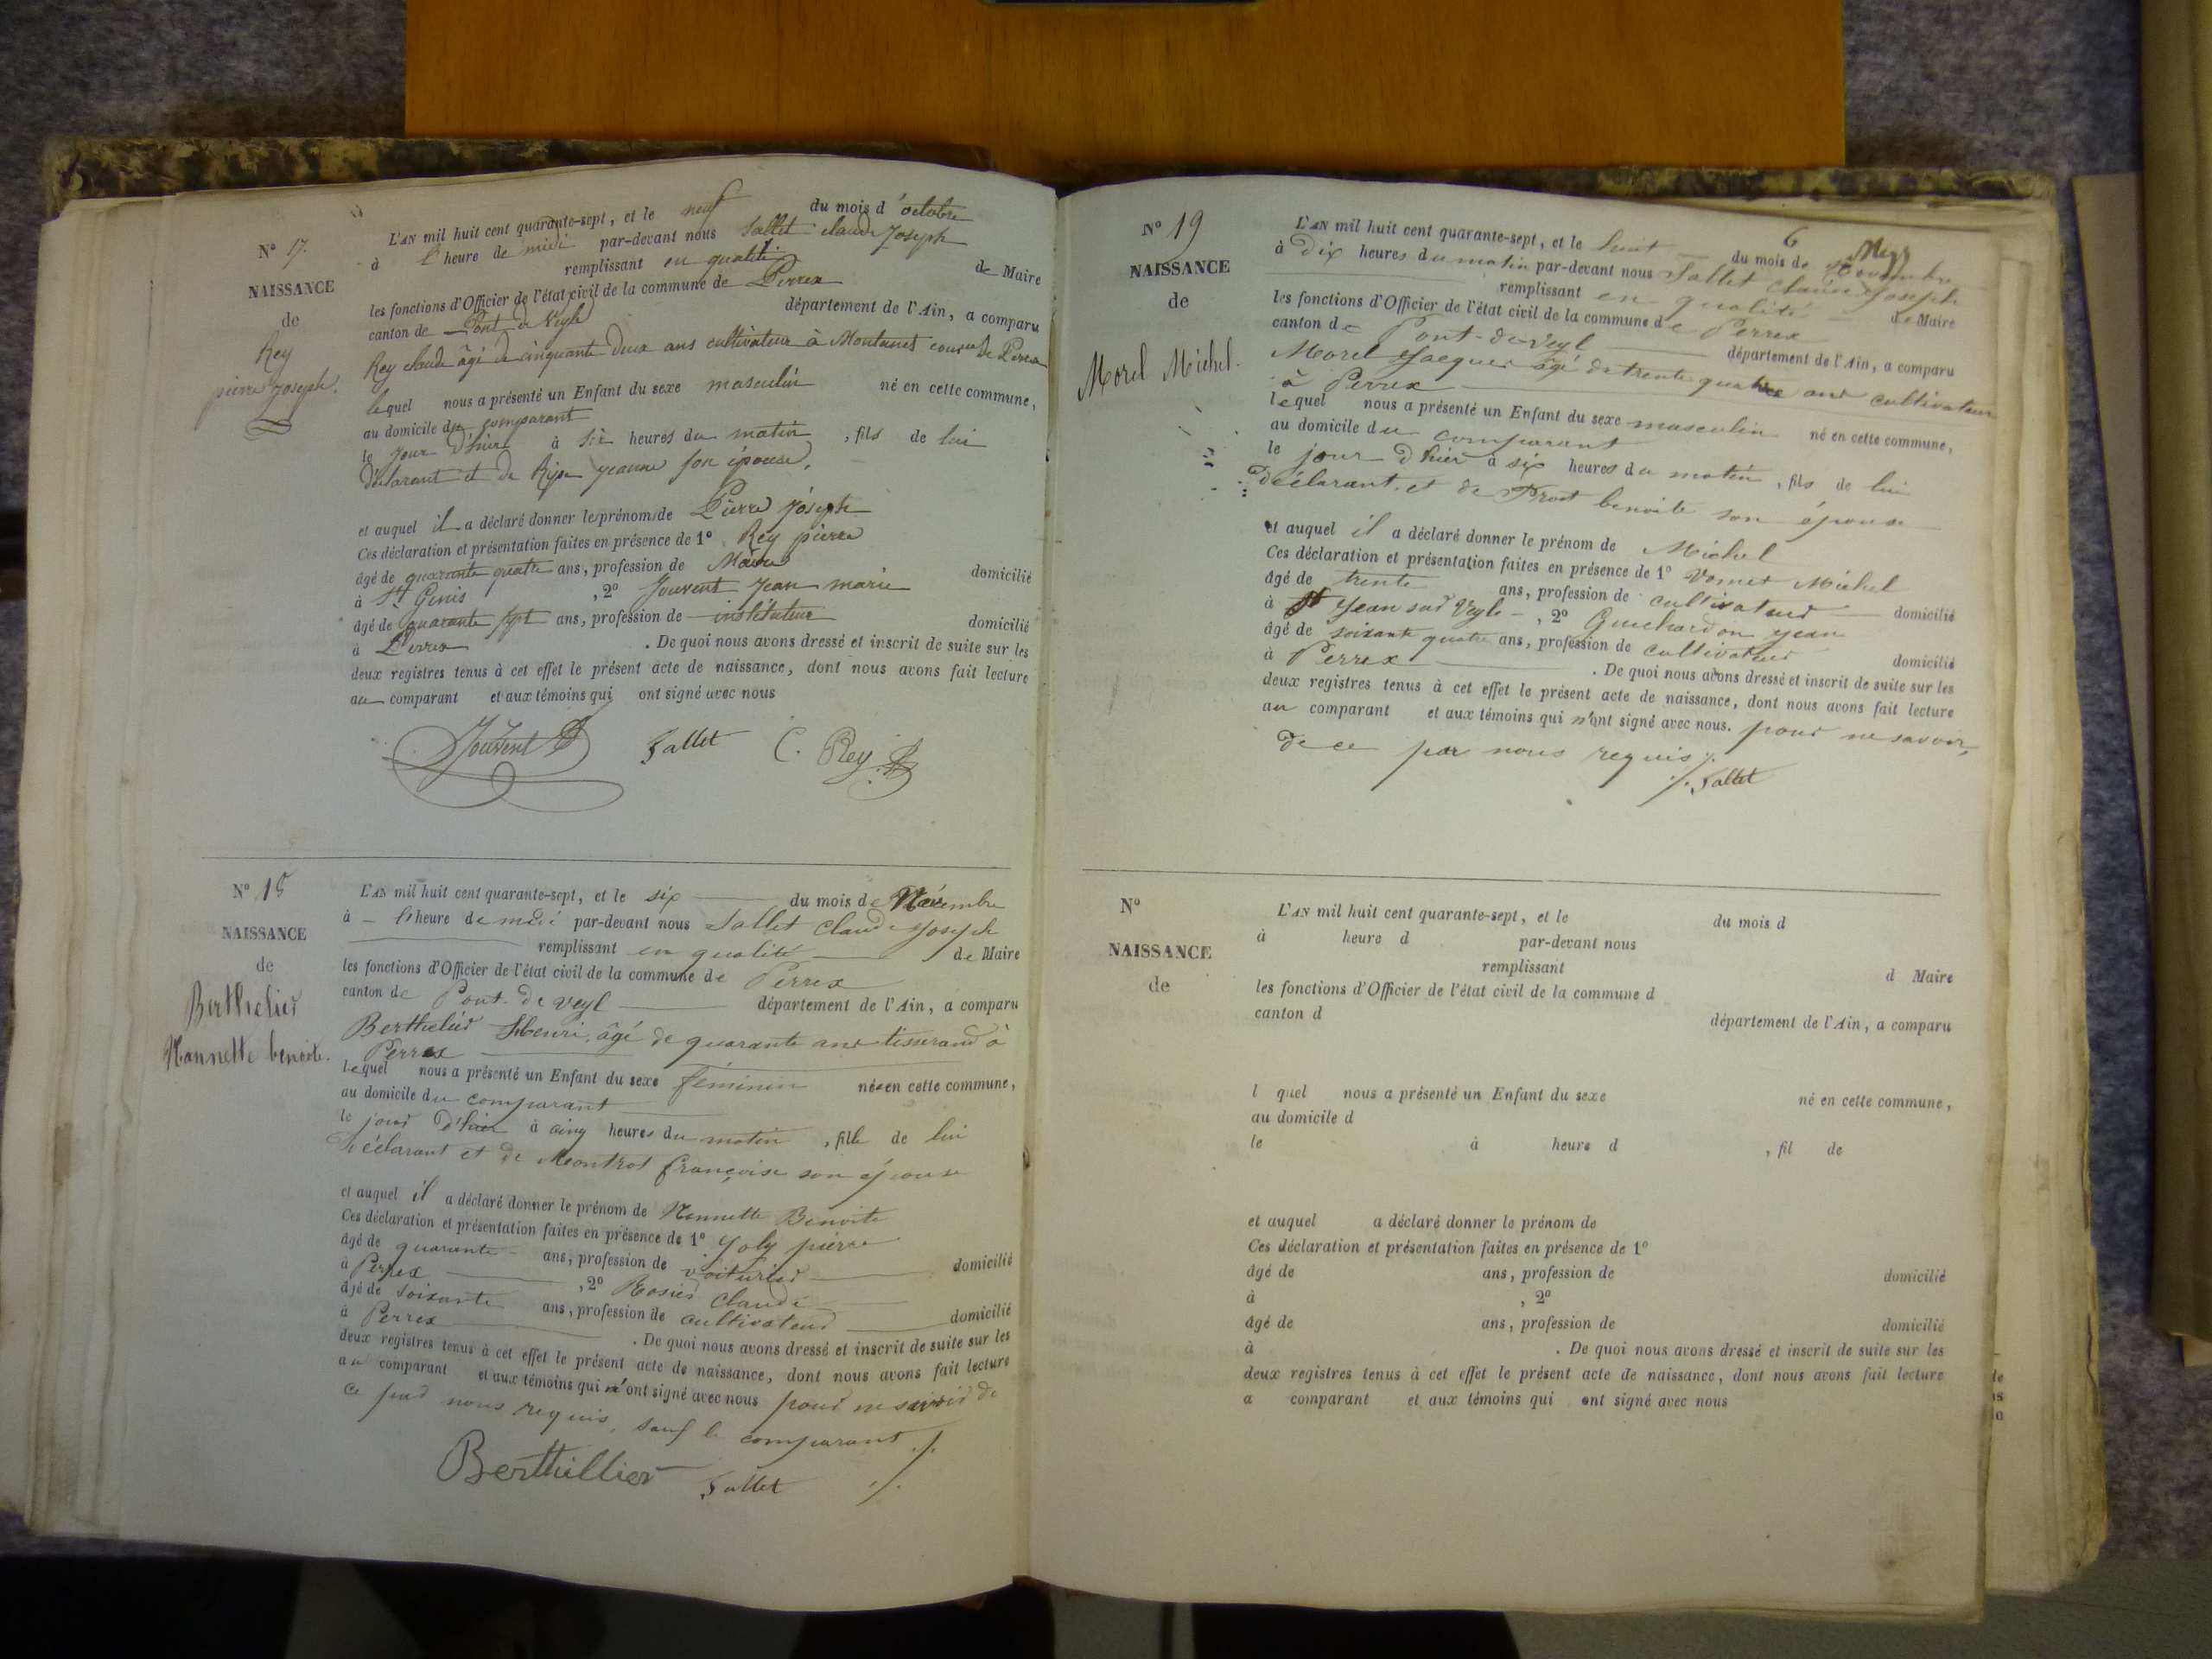 N° 17.
NAISSANCE
de
Rey
pierre Joseph.
L'AN mil huit cent quarante-sept, et le neuf du mois d'octobre
à l'heure de midi par-devant nous Sallet claude Joseph
remplissant en qualité de Maire
les fonctions d'Officier de l'état civil de la commune de Perrex
canton de Pont de Veyle département de l'Ain, a comparu
Rey claude âgé de cinquante deux ans cultivateur à Montunet de Perrex
lequel nous a présenté un Enfant du sexe masculin né en cette commune,
au domicile du comparant
le jour d'hier à six heures du matin, fils de lui
déclarant et de jeanne son épouse,
et auquel il a déclaré donner les prénoms de Pierre Joseph
Ces déclaration et présentation faites en présence de 1° Rey pierre
âgé de quarante quatre ans, profession de domicilié
à St Genis, 2° Jouvent Jean marie
âgé de quarante sept ans, profession de instituteur domicilié
à Perrex. De quoi nous avons dressé et inscrit de suite sur les
deux registres tenus à cet effet le présent acte de naissance, dont nous avons fait lecture
au comparant et aux témoins qui ont signé avec nous
Jouvent Sallet C. Rey
N° 18
NAISSANCE
de
Berthelier
Nannette benoite.
L'AN mil huit cent quarante-sept, et le six du mois de Novembre
à l'heure de midi par-devant nous Sallet Claude Joseph
remplissant en qualité de Maire
les fonctions d'Officier de l'état civil de la commune de Perrex
canton de Pont-de-veyl département de l'Ain, a comparu
Berthelier Henri, âgé de quarante ans tisserand à
Perrex
lequel nous a présenté un Enfant du sexe féminin née en cette commune,
au domicile du comparant
le jour d'hier à cinq heures du matin, fille de lui
déclarant et de Montrot françoise son épouse
et auquel il a déclaré donner le prénom de Nannette Benoite
Ces déclaration et présentation faites en présence de 1° Joly pierre
âgé de quarante ans, profession de voiturier domicilié
à Perrex, 2° Rosier Claude
âgé de soixante ans, profession de cultivateur domicilié
à Perrex. De quoi nous avons dressé et inscrit de suite sur les
deux registres tenus à cet effet le présent acte de naissance, dont nous avons fait lecture
au comparant et aux témoins qui n'ont signé avec nous pour ne savoir de
ce par nous requis, sauf le comparant ./.
Berthillier Sallet ./.
N° 19
NAISSANCE
de
Morel Michel.
L'AN mil huit cent quarante-sept, et le huit du mois de Novembre
à dix heures du matin par-devant nous Sallet Claude Joseph
remplissant en qualité de Maire
les fonctions d'Officier de l'état civil de la commune de Perrex
canton de Pont-de-veyl département de l'Ain, a comparu
Morel Jacques âgé de trente quatre ans cultivateur
à Perrex
lequel nous a présenté un Enfant du sexe masculin né en cette commune,
au domicile du comparant
le jour d'hier à six heures du matin, fils de lui
déclarant, et de Prost benoite son épouse
et auquel il a déclaré donner le prénom de Michel
Ces déclaration et présentation faites en présence de 1° Michel
âgé de trente ans, profession de cultivateur domicilié
à St Jean sur Veyle, 2° Guichardon jean
âgé de soixante quatre ans, profession de cultivateur domicilié
à Perrex. De quoi nous avons dressé et inscrit de suite sur les
deux registres tenus à cet effet le présent acte de naissance, dont nous avons fait lecture
au comparant et aux témoins qui n'ont signé avec nous. pour ne savoir,
de ce par nous requis ./.
./. Sallet
N°
NAISSANCE
de
L'AN mil huit cent quarante-sept, et le du mois d
à heure d par-devant nous
remplissant d Maire
les fonctions d'Officier de l'état civil de la commune d
canton d département de l'Ain, a comparu
l quel nous a présenté un Enfant du sexe né en cette commune,
au domicile d
le à heure d , fil de
et auquel a déclaré donner le prénom de
Ces déclaration et présentation faites en présence de 1°
âgé de ans, profession de domicilié
à , 2°
âgé de ans, profession de domicilié
à . De quoi nous avons dressé et inscrit de suite sur les
deux registres tenus à cet effet le présent acte de naissance, dont nous avons fait lecture
a comparant et aux témoins qui ont signé avec nous